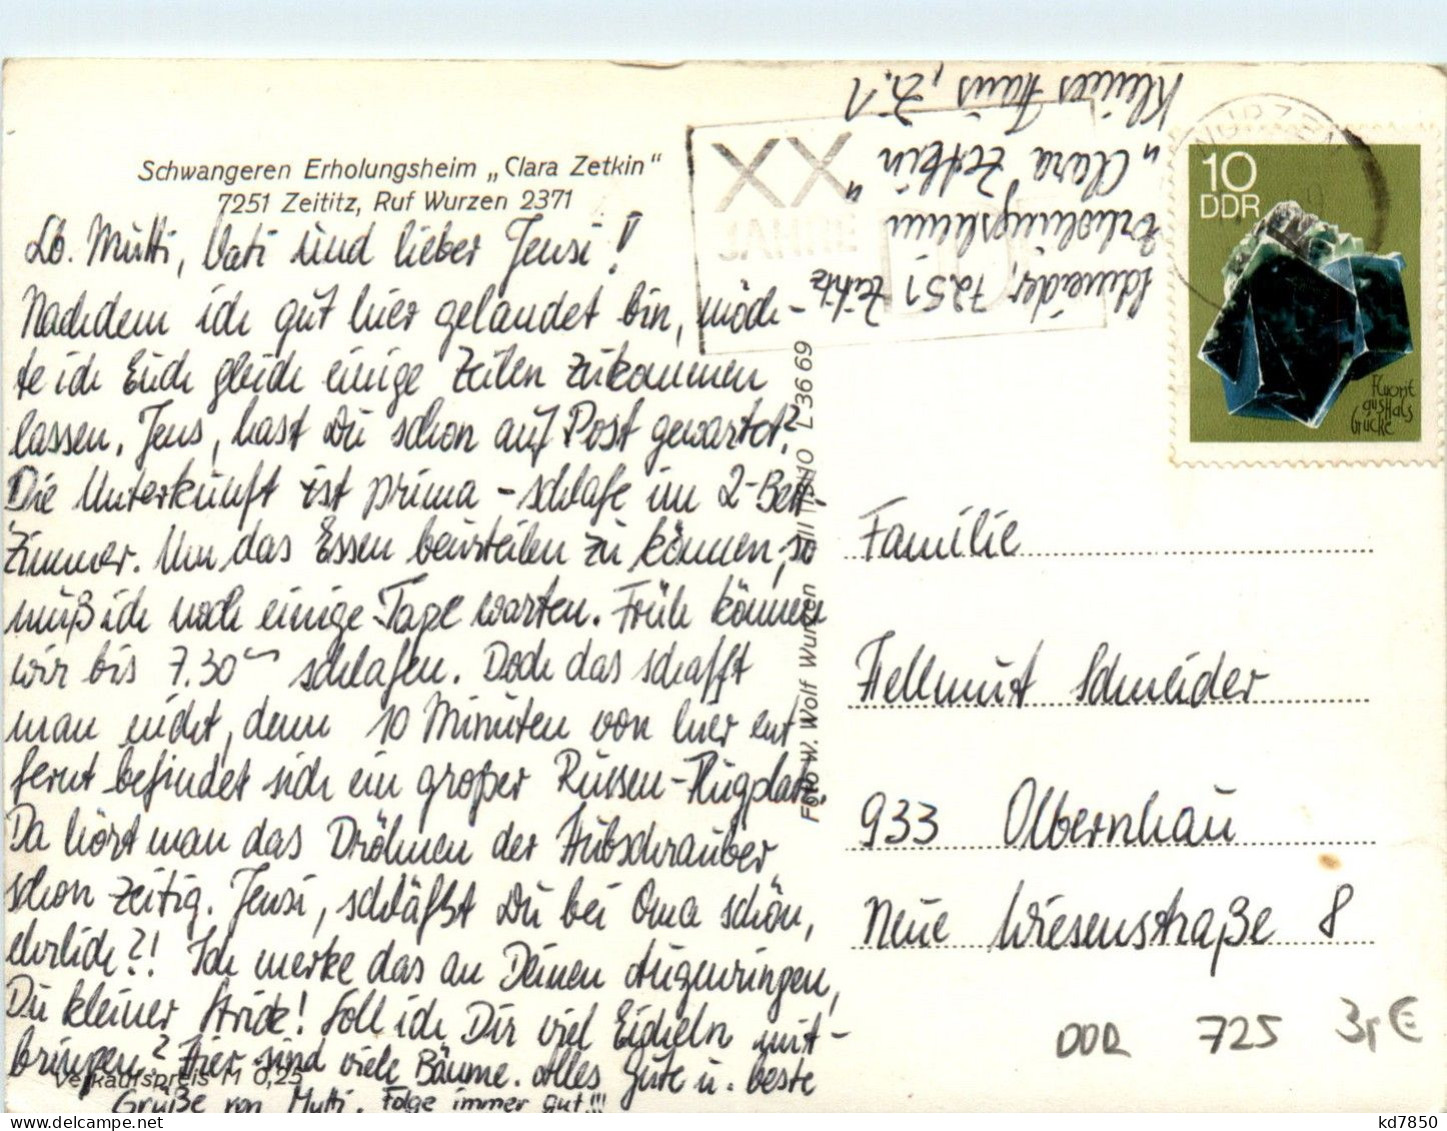 Schwangeren Erholungsheim „Clara Zetkin"
7251 Zeititz, Ruf Wurzen 2371
Lb. Mutti, Vati und lieber Jensi!
Nachdem ich gut hier gelandet bin, möch-
te ich Euch gleich einige Zeilen zukommen
lassen. Jens, hast Du schon auf Post gewartet?
Die Unterkunft ist prima – schlafe im 2-Bett
Zimmer. Um das Essen beurteilen zu können, so
muß ich noch einige Tage warten. Früh können
wir bis 7.30 schlafen. Doch das schafft
man nicht, denn 10 Minuten von hier ent
fernt befindet sich ein großer Russen-Flugplatz.
Da hört man das Dröhnen der Hubschrauber
schon zeitig. Jensi, schläfst Du bei Oma schön,
ehrlich?! Ich merke das an Deinen Augenringen,
Du kleiner Strick! Soll ich Dir viel Eicheln mit-
bringen? Hier sind viele Bäume. Alles Gute u. beste
Grüße von Mutti. Folge immer gut!!!
Verkaufspreis M 0,25
Foto W. Wolf Wurzen III L 36 69
Schneider, 7251 Zeititz
Erholungsheim
„Clara Zetkin"
Kleines Haus, Zi. 1
XX
JAHRE
DDR
WURZEN
10
DDR
Fluorit
aus Hals
Gücke
Familie
Hellmut Schneider
933 Olbernhau
Neue Wiesenstraße 8
DDR 725 3,- €
kd7850